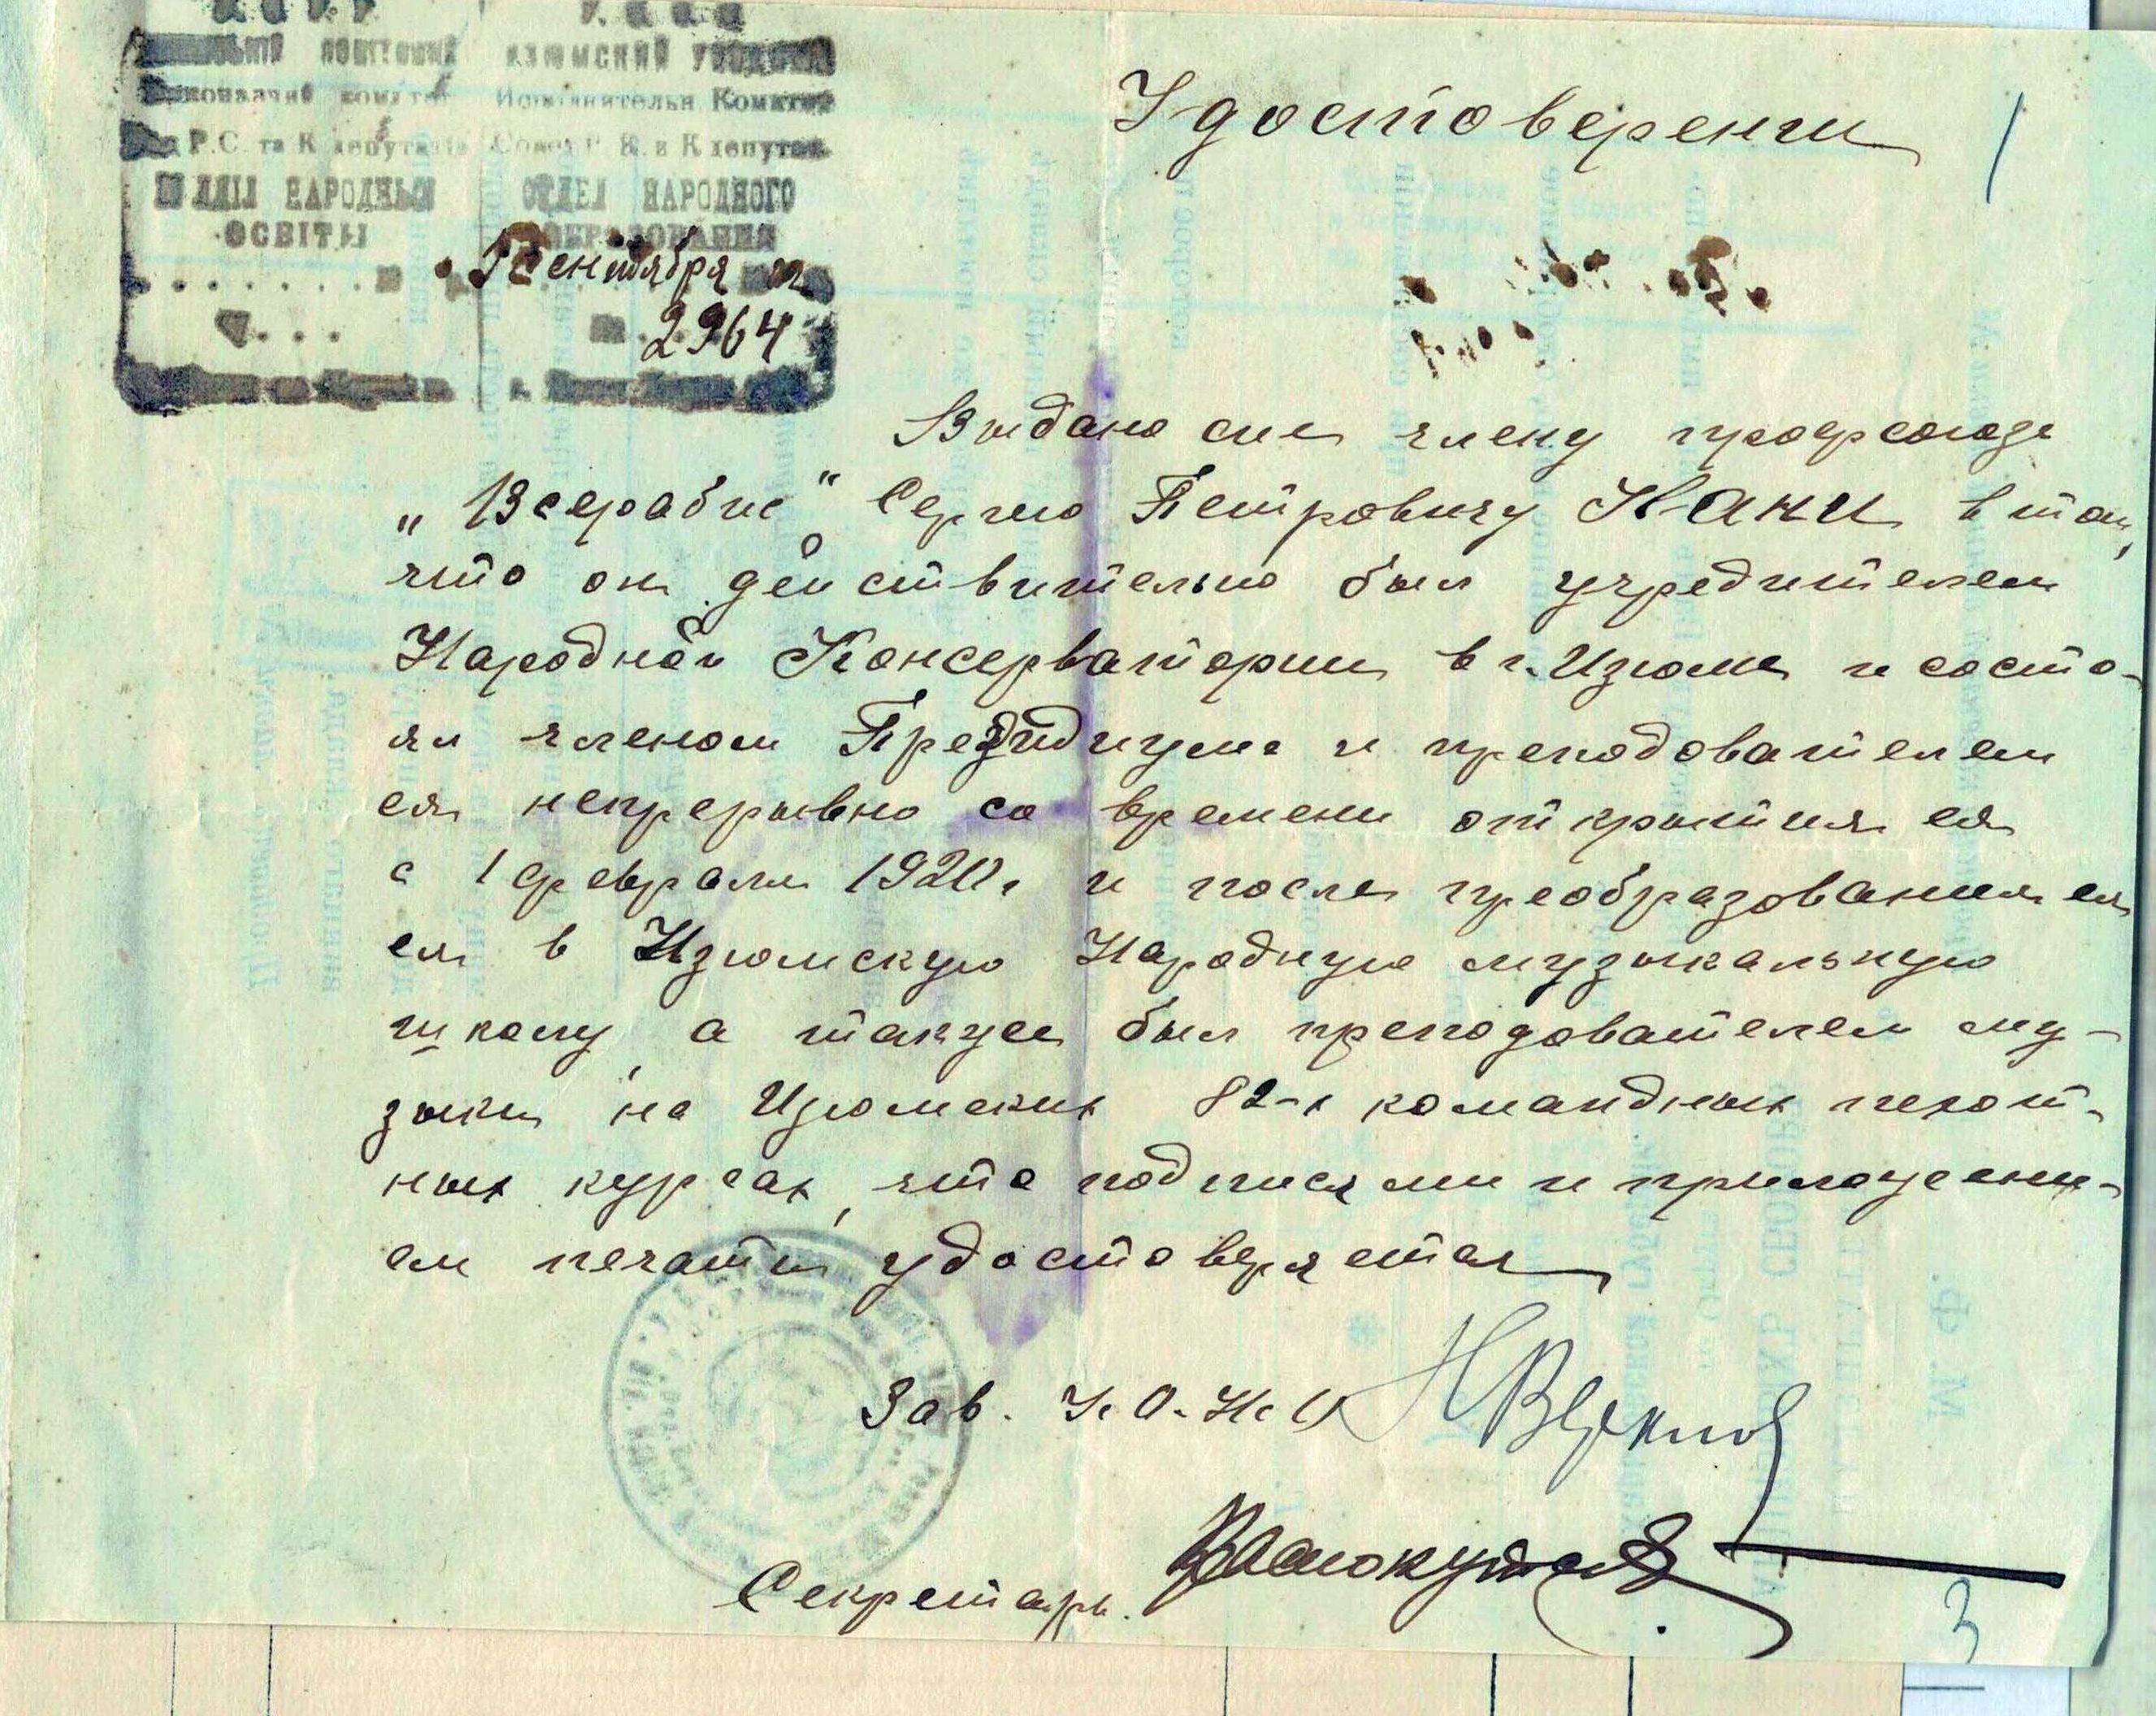 У.С.С.Р.
ИЗЮМСКИЙ УЕЗДНЫЙ
Исполнительн Комитет
Р.С. та К депутатів Совет Р. К. и К депутат.
ВІДДІЛ НАРОДНЬОЇ ОТДЕЛ НАРОДНОГО
ОСВІТЫ ОБРАЗОВАНИЯ
Сентября 22
2964
Удостоверение
1
Выдано сие члену профсоюза
„Всерабис" Сергею Петровичу Кани в том,
что он действительно был учредителем
Народной Консерватории в г. Изюме и состо-
ял членом Президиума и преподователем
ея непрерывно со времени открытия ея
с 1 февраля 1920 г. и после преобразования ея
ея в Изюмскую Народную музыкальную
школу, а также был преподователем му-
зыки на Изюмских 82-х командных пехот-
ных курсах, что подписями и приложени-
ем печати удостоверяется
Зав. У.О.Н.О
Секретарь.
3